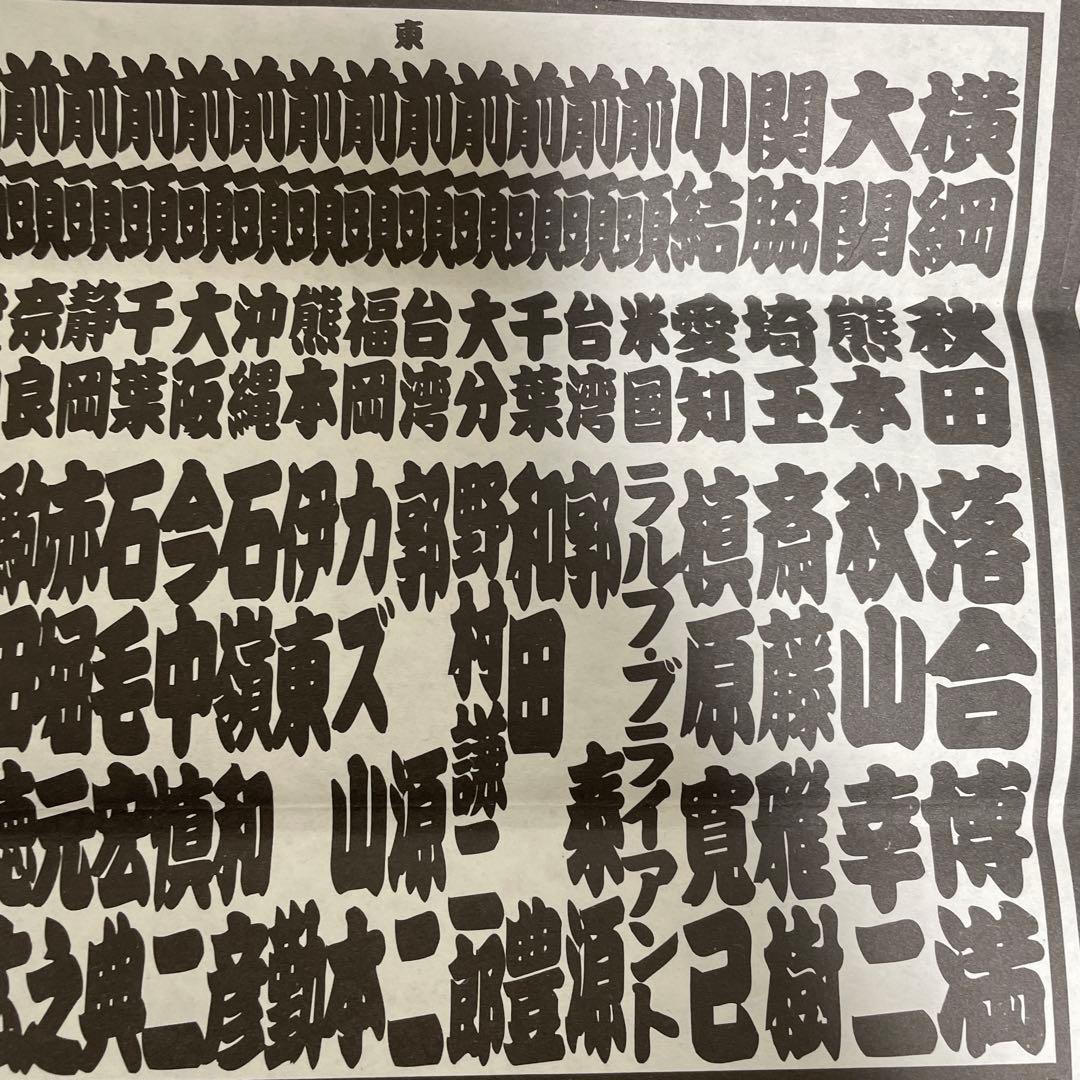 東
横綱 秋田 落合博満
大関 熊本 秋山幸二
関脇 埼玉 斎藤雅樹
小結 愛知 槙原寛己
前頭 米国 ラルフ・ブライアント
前頭 台湾 郭泰源
前頭 千葉 和田豊
前頭 大分 野村謙二郎
前頭 台湾 郭源二
前頭 福岡 カズ山本
前頭 熊本 伊東勤
前頭 沖縄 石嶺和彦
前頭 大阪 今中慎二
前頭 千葉 石毛宏典
前頭 静岡 赤堀元之
前頭 奈良 駒田徳